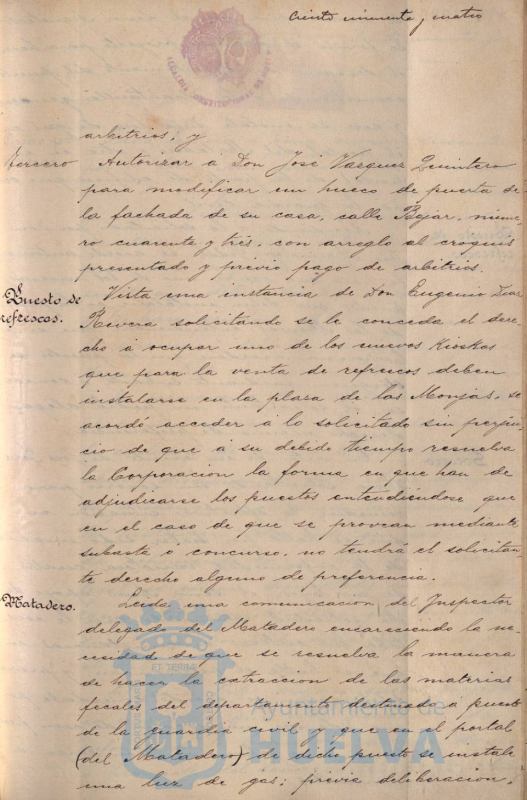 Ciento cincuenta y cuatro
arbitrios; y
tercero Autorizar á Don José Vazquez Quintero
para modificar un hueco de puerta de
la fachada de su casa, calle Bejar, núme-
ro cuarenta y tres, con arreglo al croquis
presentado y previo pago de arbitrios.
Puesto de refrescos.
Vista una instancia de Don Eugenio Diaz
Rivera solicitando se le conceda el dere-
cho á ocupar uno de los nuevos Kioskos
que para la venta de refrescos deben
instalarse en la plaza de las Monjas, se
acordó acceder á lo solicitado sin perjui-
cio de que á su debido tiempo resuelva
la Corporacion la forma en que han de
adjudicarse los puestos entendiendose que
en el caso de que se provean mediante
subasta ó concurso, no tendrá el solicitan-
te derecho alguno de preferencia.
Matadero.
Leida una comunicacion del Inspector
delegado del Matadero encareciendo la ne-
cesidad de que se resuelva la manera
de hacer la extraccion de las materias
fecales del departamento destinado a puesto
de la guardia civil y que en el portal
(del Matadero) de dicho puesto se instale
una luz de gas; previa deliberacion,
Ayuntamiento de
HUELVA